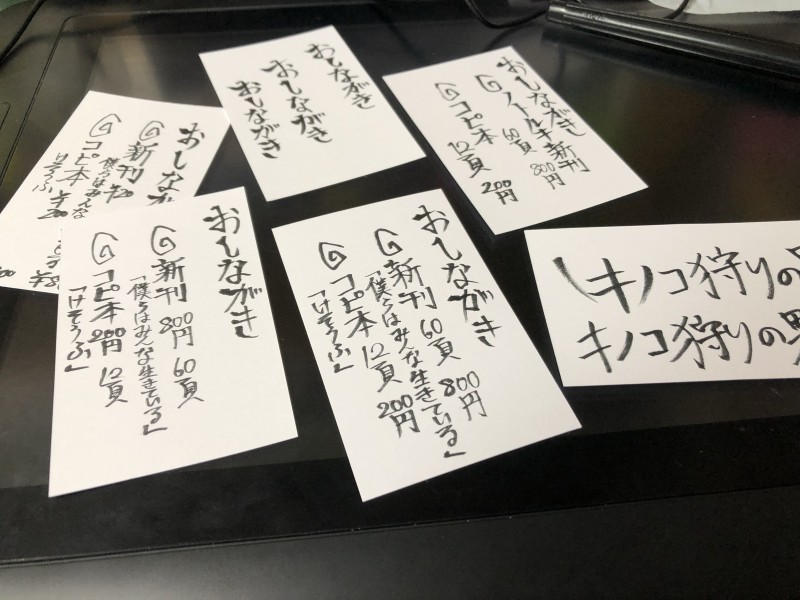 おしながき
おしながき
おしながき
おしながき
ノイドル本新刊
60頁 800円
コピ本
12頁 200円
おしなが
新刊
僕らはみんな
コピ本
けそうぶ
おしながき
新刊 800円 60頁
「僕らはみんな生きている」
コピ本 200円 12頁
「けそうぶ」
おしながき
新刊 60頁 800円
「僕らはみんな生きている」
コピ本 12頁 200円
「けそうぶ」
キノコ狩りの
キノコ狩りの男